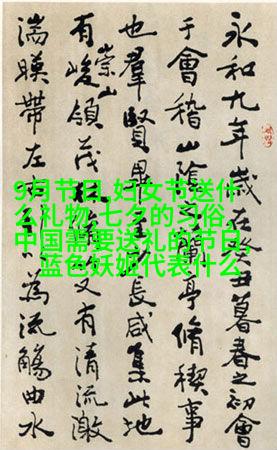 9月节日,妇女节送什
么礼物,七夕的习俗,
中国需要送礼的节日
,蓝色妖姬代表什么
永和九年歲在癸丑暮春之初會
于會稽山陰亭脩稧事
也羣賢長咸集此地
有崇山峻領茂又有清流激
湍暎帶左為流觴曲水